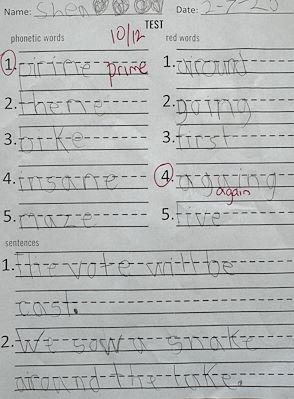 Name: Shen Date: 2-7-23
TEST
phonetic words 10/12 red words
1. prime
1. around
2. theme
2. going
3. bike
3. first
4. insane
4. again
5. maze
5. live
sentences
1. the vote will be
cast.
2. We saw a snake
around the lake.